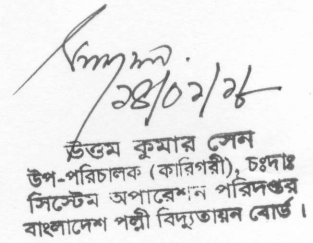 ১৪/০২/১৮
উত্তম কুমার সেন
উপ-পরিচালক (কারিগরী), চঃদাঃ
সিস্টেম অপারেশন পরিদপ্তর
বাংলাদেশ পল্লী বিদ্যুতায়ন বোর্ড।